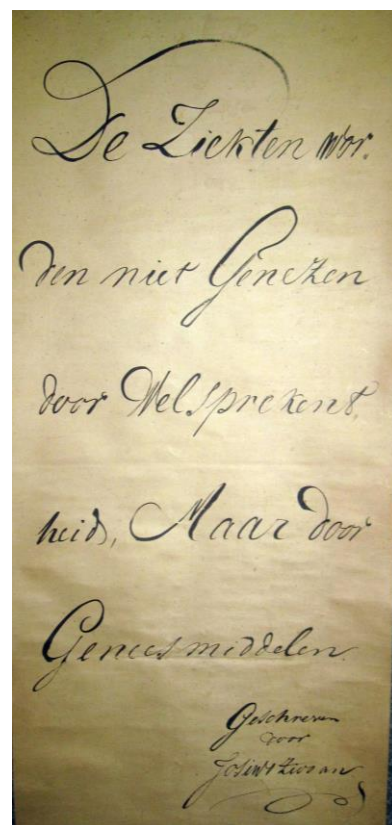 De Ziekten wor.
den niet Genezen
door Welsprekent,
heid, Maar door
Geneesmiddelen.
Geschreven
door